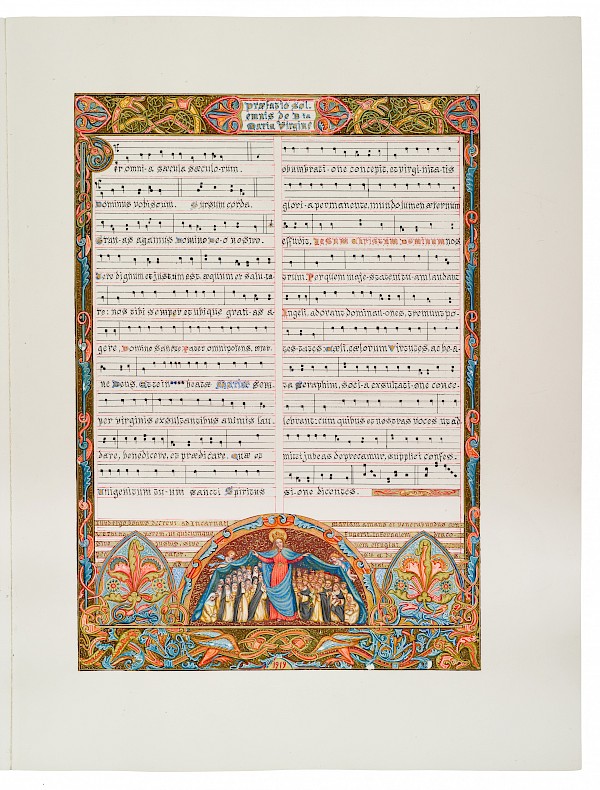 Præfatio sol-
emnis de Bta
Maria Virgine
Per omni-a sæcula sæculorum.
Dominus vobiscum. Sursum corda.
Gratias agamus Domino De-o nostro.
Vere dignum et justum est, æquum et saluta-
re: nos tibi semper et ubique grati-as a-
gere, Domine sancte Pater omnipotens, æter-
ne Deus, Et te in **** beatæ Mariæ sem-
per virginis exsultantibus animis lau-
dare, benedicere, et prædicare. Quæ et
Unigenitum tu-um Sancti Spiritus
obumbrati-one concepit, et virginitatis
glori-a permanente, mundo lumen æternum
effudit, Jesum Christum Dominum nos-
trum. Per quem maje-statem tu-am laudant
Angeli, adorant dominati-ones, tremunt po-
testates. Cæli, cælorum Virtutes, ac be-a-
ta Seraphim, soci-a exsultati-one conce-
lebrant. cum quibus et nostras voces ut ad-
mitti jubeas deprecamur, supplici confes-
si-one dicentes.
1919